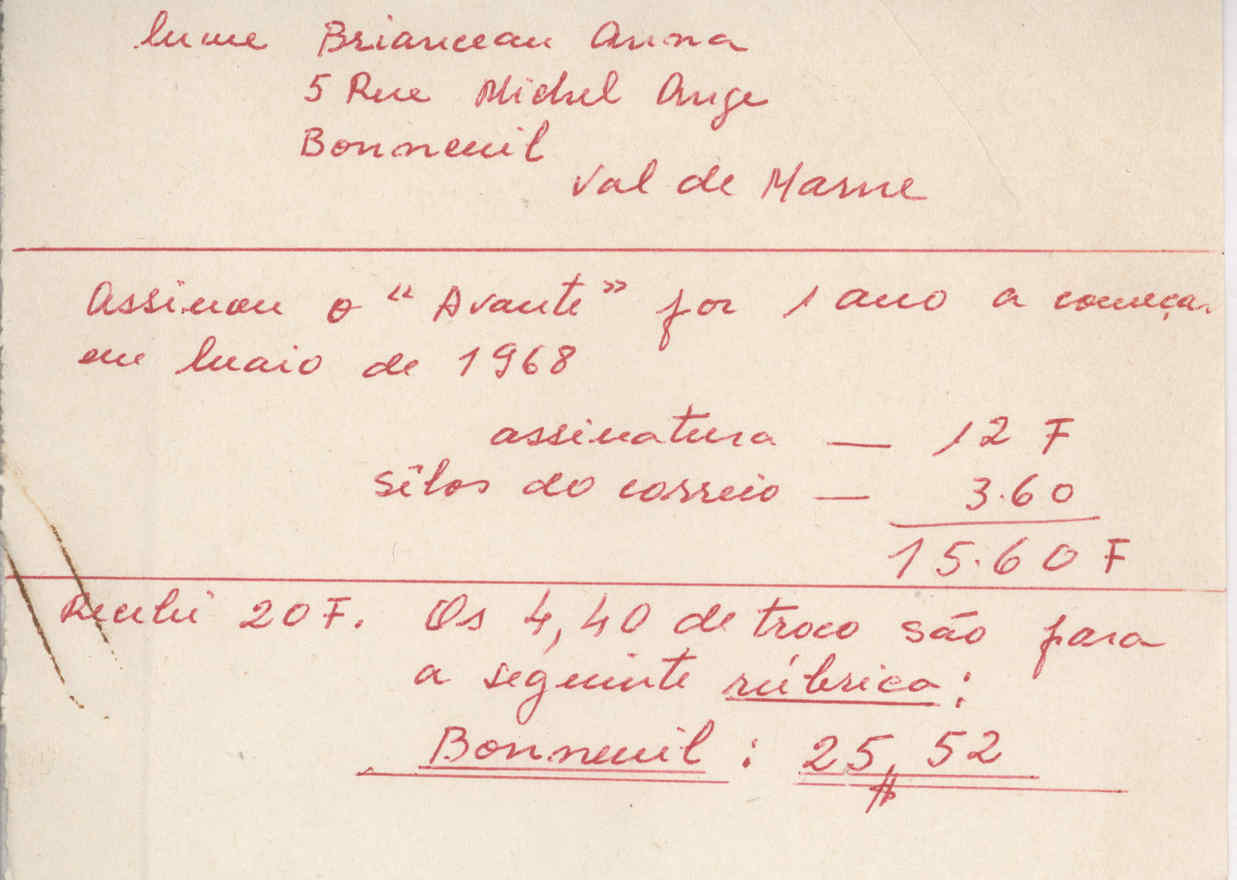 Mme Brianceau Anna
5 Rue Michel Ange
Bonneuil
Val de Marne
Assinou o "Avante" por 1 ano a começar
em Maio de 1968
assinatura — 12 F
sêlos do correio — 3.60
15.60 F
Recebi 20 F. Os 4,40 de troco são para
a seguinte rúbrica:
Bonneuil : 25,52